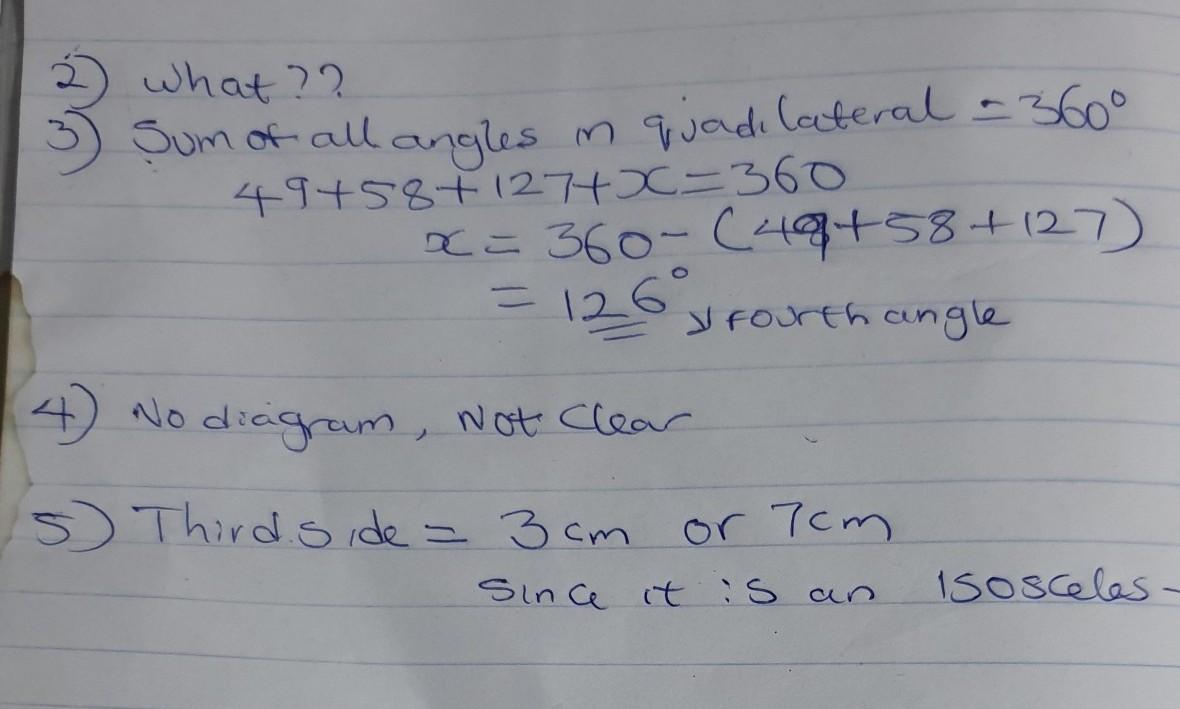 2) What??
3) Sum of all angles in quadilateral = 360°
49+58+127+x=360
x = 360 - (49+58+127)
= 126° fourth angle
4) No diagram, Not Clear
5) Third side = 3cm or 7cm
Since it is an isosceles-